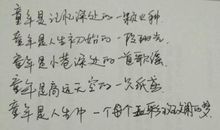 童年是记忆深处的一颗火种
童年是人生中初始的一段阳光
童年是小巷深处的一首歌谣
童年是高远天空的一只纸鸢
童年是人生中一个每个五彩斑斓的梦